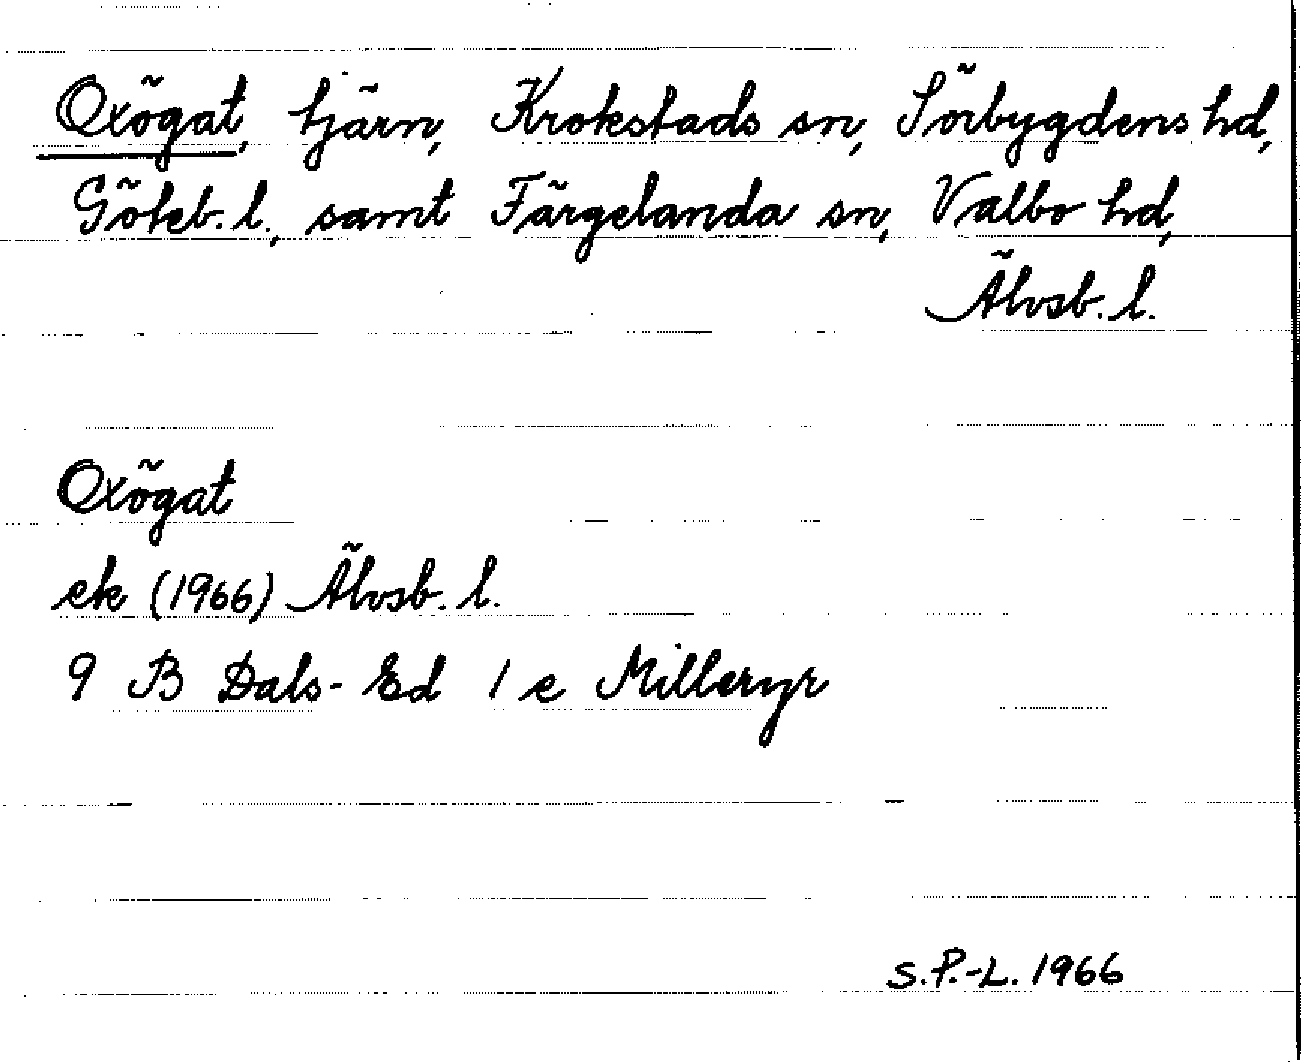 Oxögat, tjärn, Krokstads sn, Sörbygdens hd,
Göteb. l., samt Färgelanda sn, Valbo hd,
Älvsb. l.
Oxögat
ek (1966) Älvsb. l.
9 B Dals-Ed 1 e Milleryr
S.P.-L. 1966